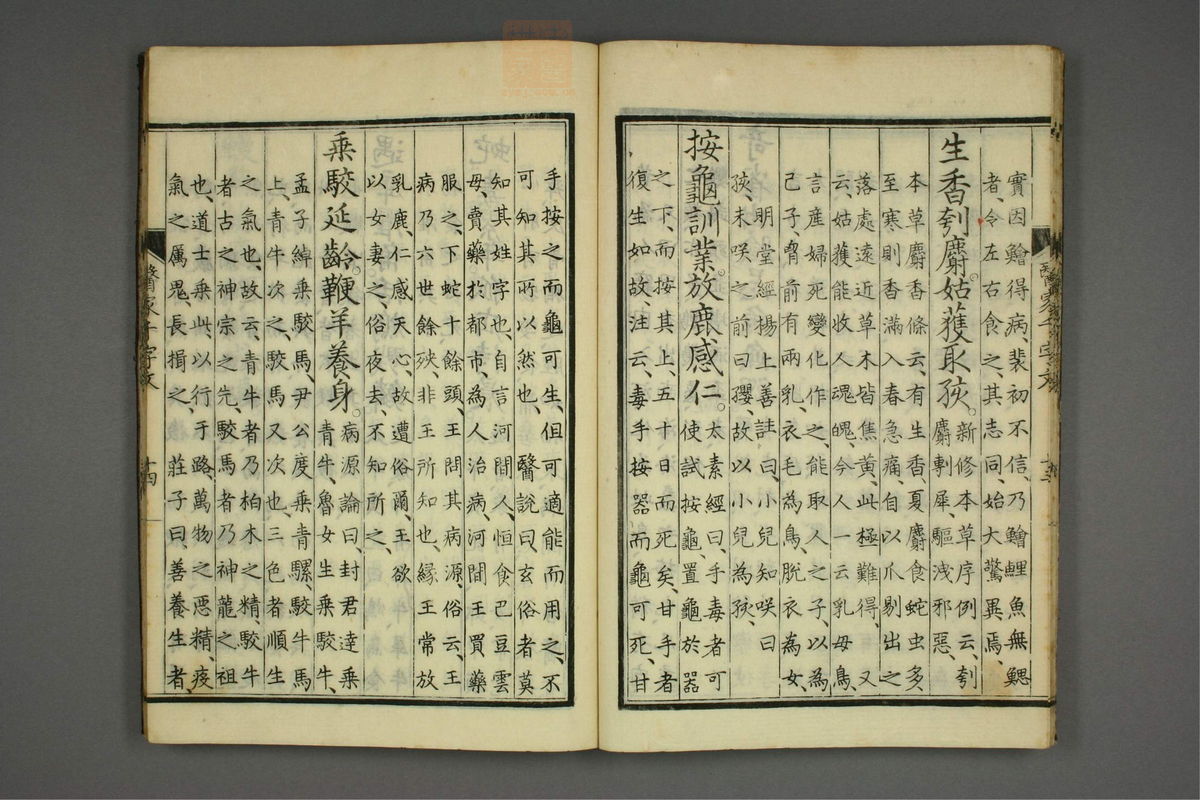 實因鱠得病、裴初不信、乃鱠鯉魚無鰓
者、令左右食之、其志同、始大驚異焉、
生香刳麝。姑獲取孩。
新修本草序例云、刳
麝剸犀驅洩邪惡、
本草麝香條云、有生香夏麝食蛇虫多
至寒則香滿、入春急痛、自以爪剔出之
落處遠近草木皆焦黄、此極難得、又
云、姑獲能收人魂魄、今人一云乳母鳥、
言産婦死變化作之、能取人之子、以為
己子、胷前有兩乳、衣毛為鳥、脱衣為女、
明堂經楊上善註曰、小兒知咲曰
孩、未咲之前曰孾、故以小兒為孩、
按龜訓業。放鹿感仁。
太素經曰、手毒者可
使試按龜、置龜於器
之下、而按其上、五十日而死矣、甘手者
復生如故、注云、毒手按器而龜可死、甘
手按之而龜可生、但可適能而用之、不
可知其所以然也、醫說曰、玄俗者莫
知其姓字也、自言河間人、恒食巴豆雲
母、賣藥於都市、為人治病、河間王買藥
服之、下蛇十餘頭、王問其病源、俗云、王
病乃六世餘殃、非王所知也、緣王常放
乳鹿、仁感天心、故遭俗爾、王欲
以女妻之、俗夜去、不知所之、
乘駮延齡。鞭羊養身。
病源論曰、封君達乘
青牛、魯女生乘駮牛、
孟子綽乘駮馬、尹公度乘青騾、駮牛馬
上、青牛次之、駮馬又次也、三色者順生
之氣也、故云、青牛者乃柏木之精、駮牛
者古之神宗之先、駮馬者乃神龍之祖
也、道士乘此以行于路、萬物之惡精、疫
氣之厲鬼、長揖之、莊子曰、善養生者、
醫家千字文 十四